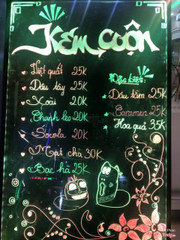 Kem cuộn
Việt quất 25K
Dâu tây 25K
Xoài 20K
Chanh leo 20K
Socola 20K
Mạt chà 30K
Bạc hà 25K
Đặc biệt
Dâu tằm 25K
Caramen 25K
Hoa quả 35K